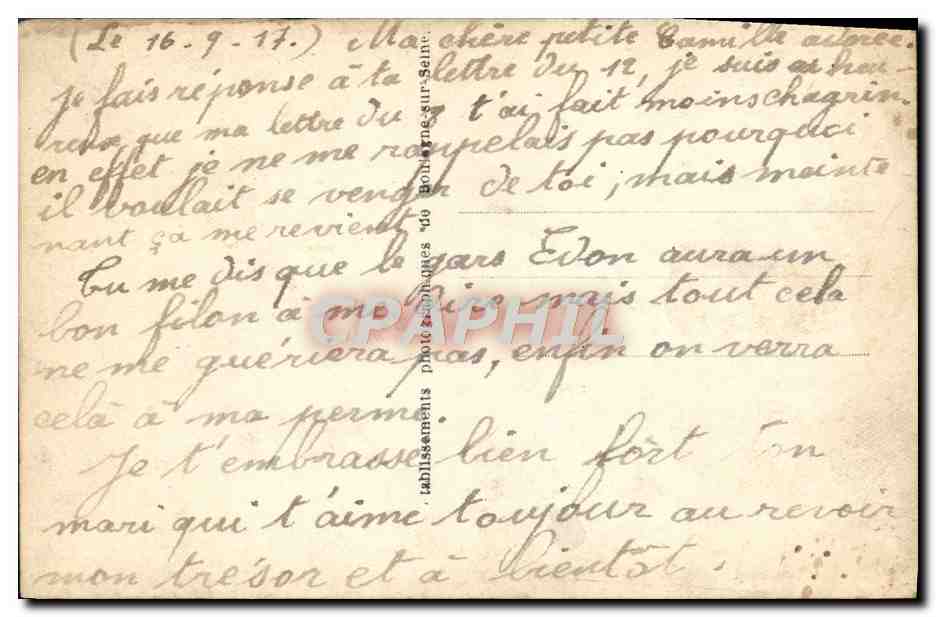 (Le 16-9-17.) Ma chère petite Camille adorée.
je fais réponse à ta lettre du 12, je suis heu-
reux que ma lettre du 8 t'ai fait moins chagrin.
en effet je ne me rappelais pas pourquoi
il voulait se venger de toi, mais mainte
nant ça me revient
Tu me dis que le gars Edon aura un
bon filon à me dire mais tout cela
ne me guériera pas, enfin on verra
celà à ma perme.
Je t'embrasse bien fort Ton
mari qui t'aime toujour au revoir
mon trésor et à bientôt.
tablissements photographiques de Boulogne-sur-Seine.
CPAPHIL